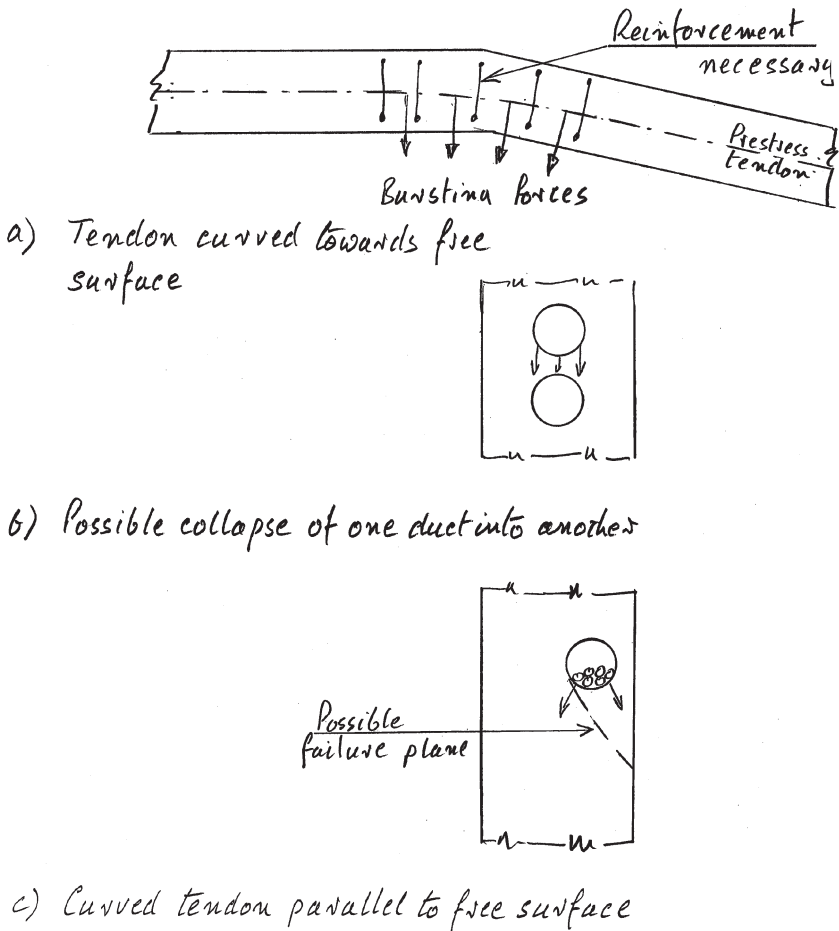 Reinforcement
necessary
Prestress
tendon
Bursting forces
a) Tendon curved towards free
surface
b) Possible collapse of one duct into another
Possible
failure plane
c) Curved tendon parallel to free surface